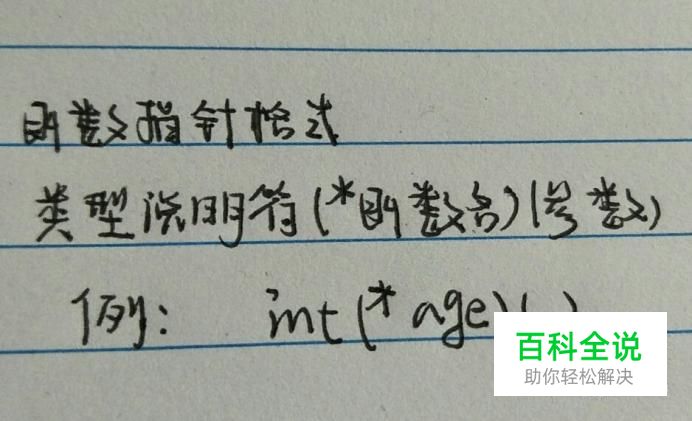 函数指针格式
类型说明符(*函数名)(参数)
例: int(*age)( )
百科全说
助你轻松解决